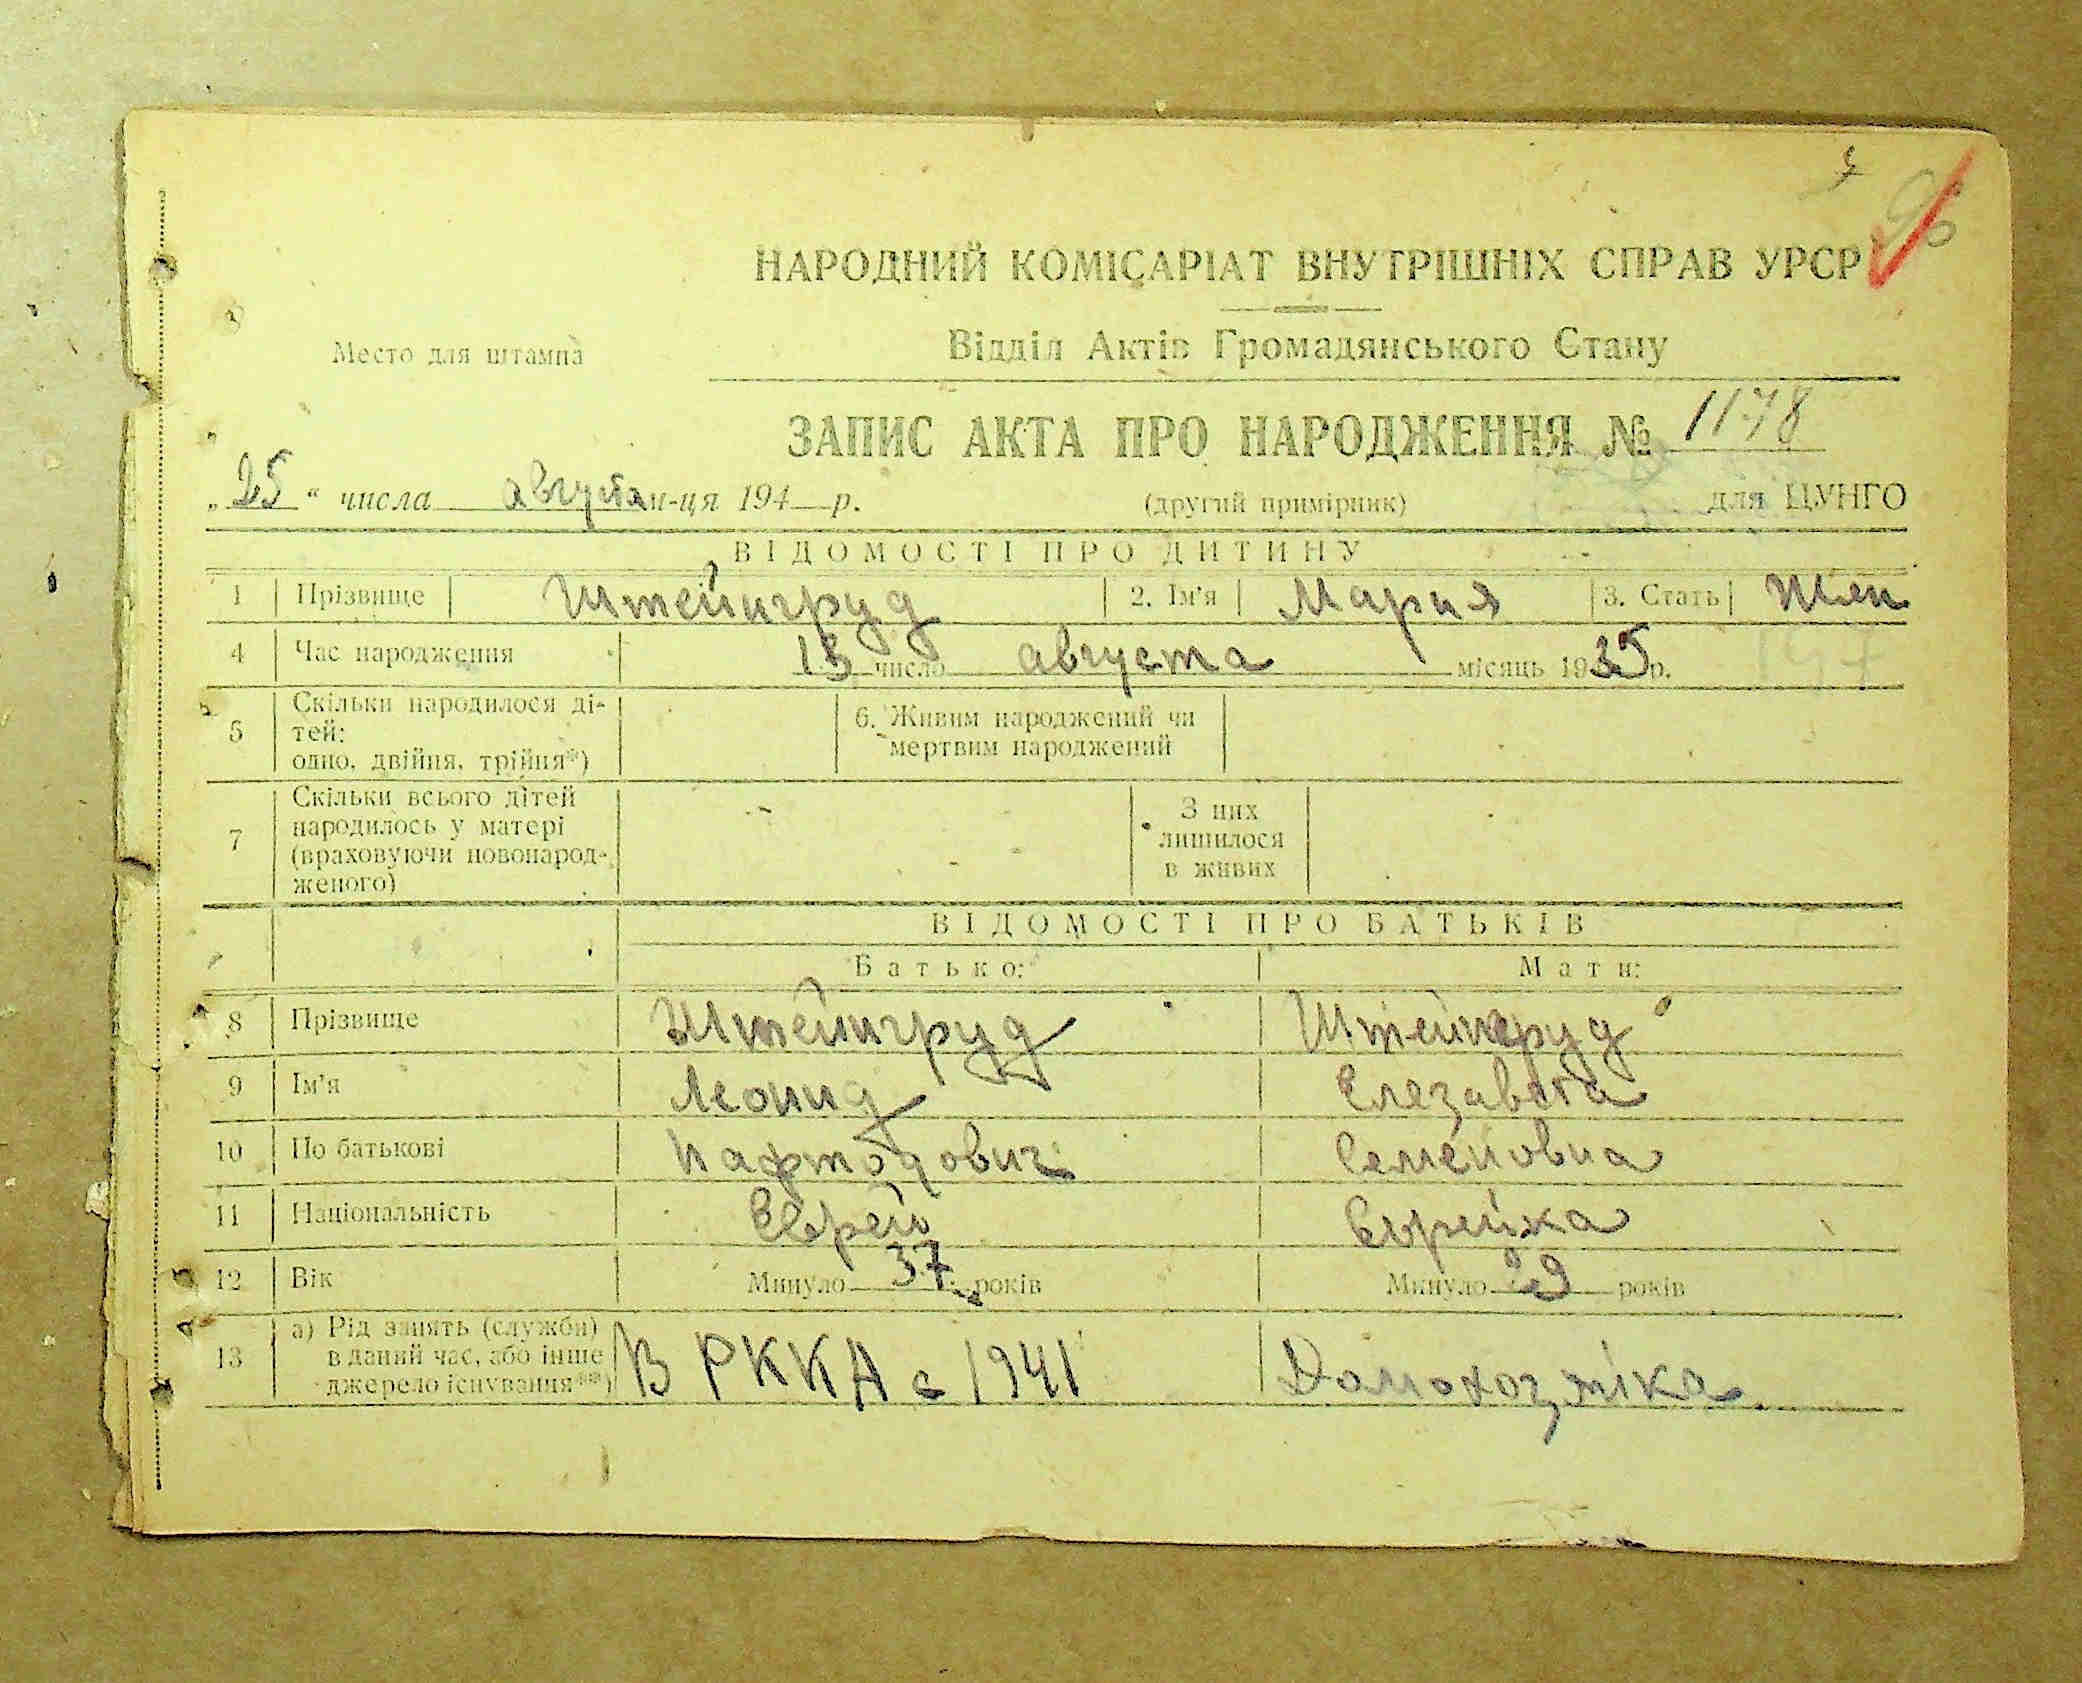 НАРОДНИЙ КОМІСАРІАТ ВНУТРІШНІХ СПРАВ УРСР
Место для штампа
Відділ Актів Громадянського Стану
ЗАПИС АКТА ПРО НАРОДЖЕННЯ № 1178
„25“ числа августа м-ця 194 р. (другий примірник) для ЦУНГО
ВІДОМОСТІ ПРО ДИТИНУ
1 Прізвище Штейнгруд 2. Ім'я Мария 3. Стать жен
4 Час народження 13 число августа місяць 1935 р.
5 Скільки народилося ді-
тей:
одно, двійня, трійня*)
6. Живим народжений чи
мертвим народжений
7 Скільки всього дітей
народилось у матері
(враховуючи новонарод-
женого)
З них
лишилося
в живих
ВІДОМОСТІ ПРО БАТЬКІВ
Батько: Мати:
8 Прізвище Штейнгруд Штейнгруд
9 Ім'я Леонид Елезавета
10 По батькові Нафтодович Семеновна
11 Національність Еврей Еврейка
12 Вік Минуло 37 років Минуло 29 років
13 а) Рід занять (служби)
в даний час, або інше
джерело існування**)
В РККА с 1941 Домохозяіка